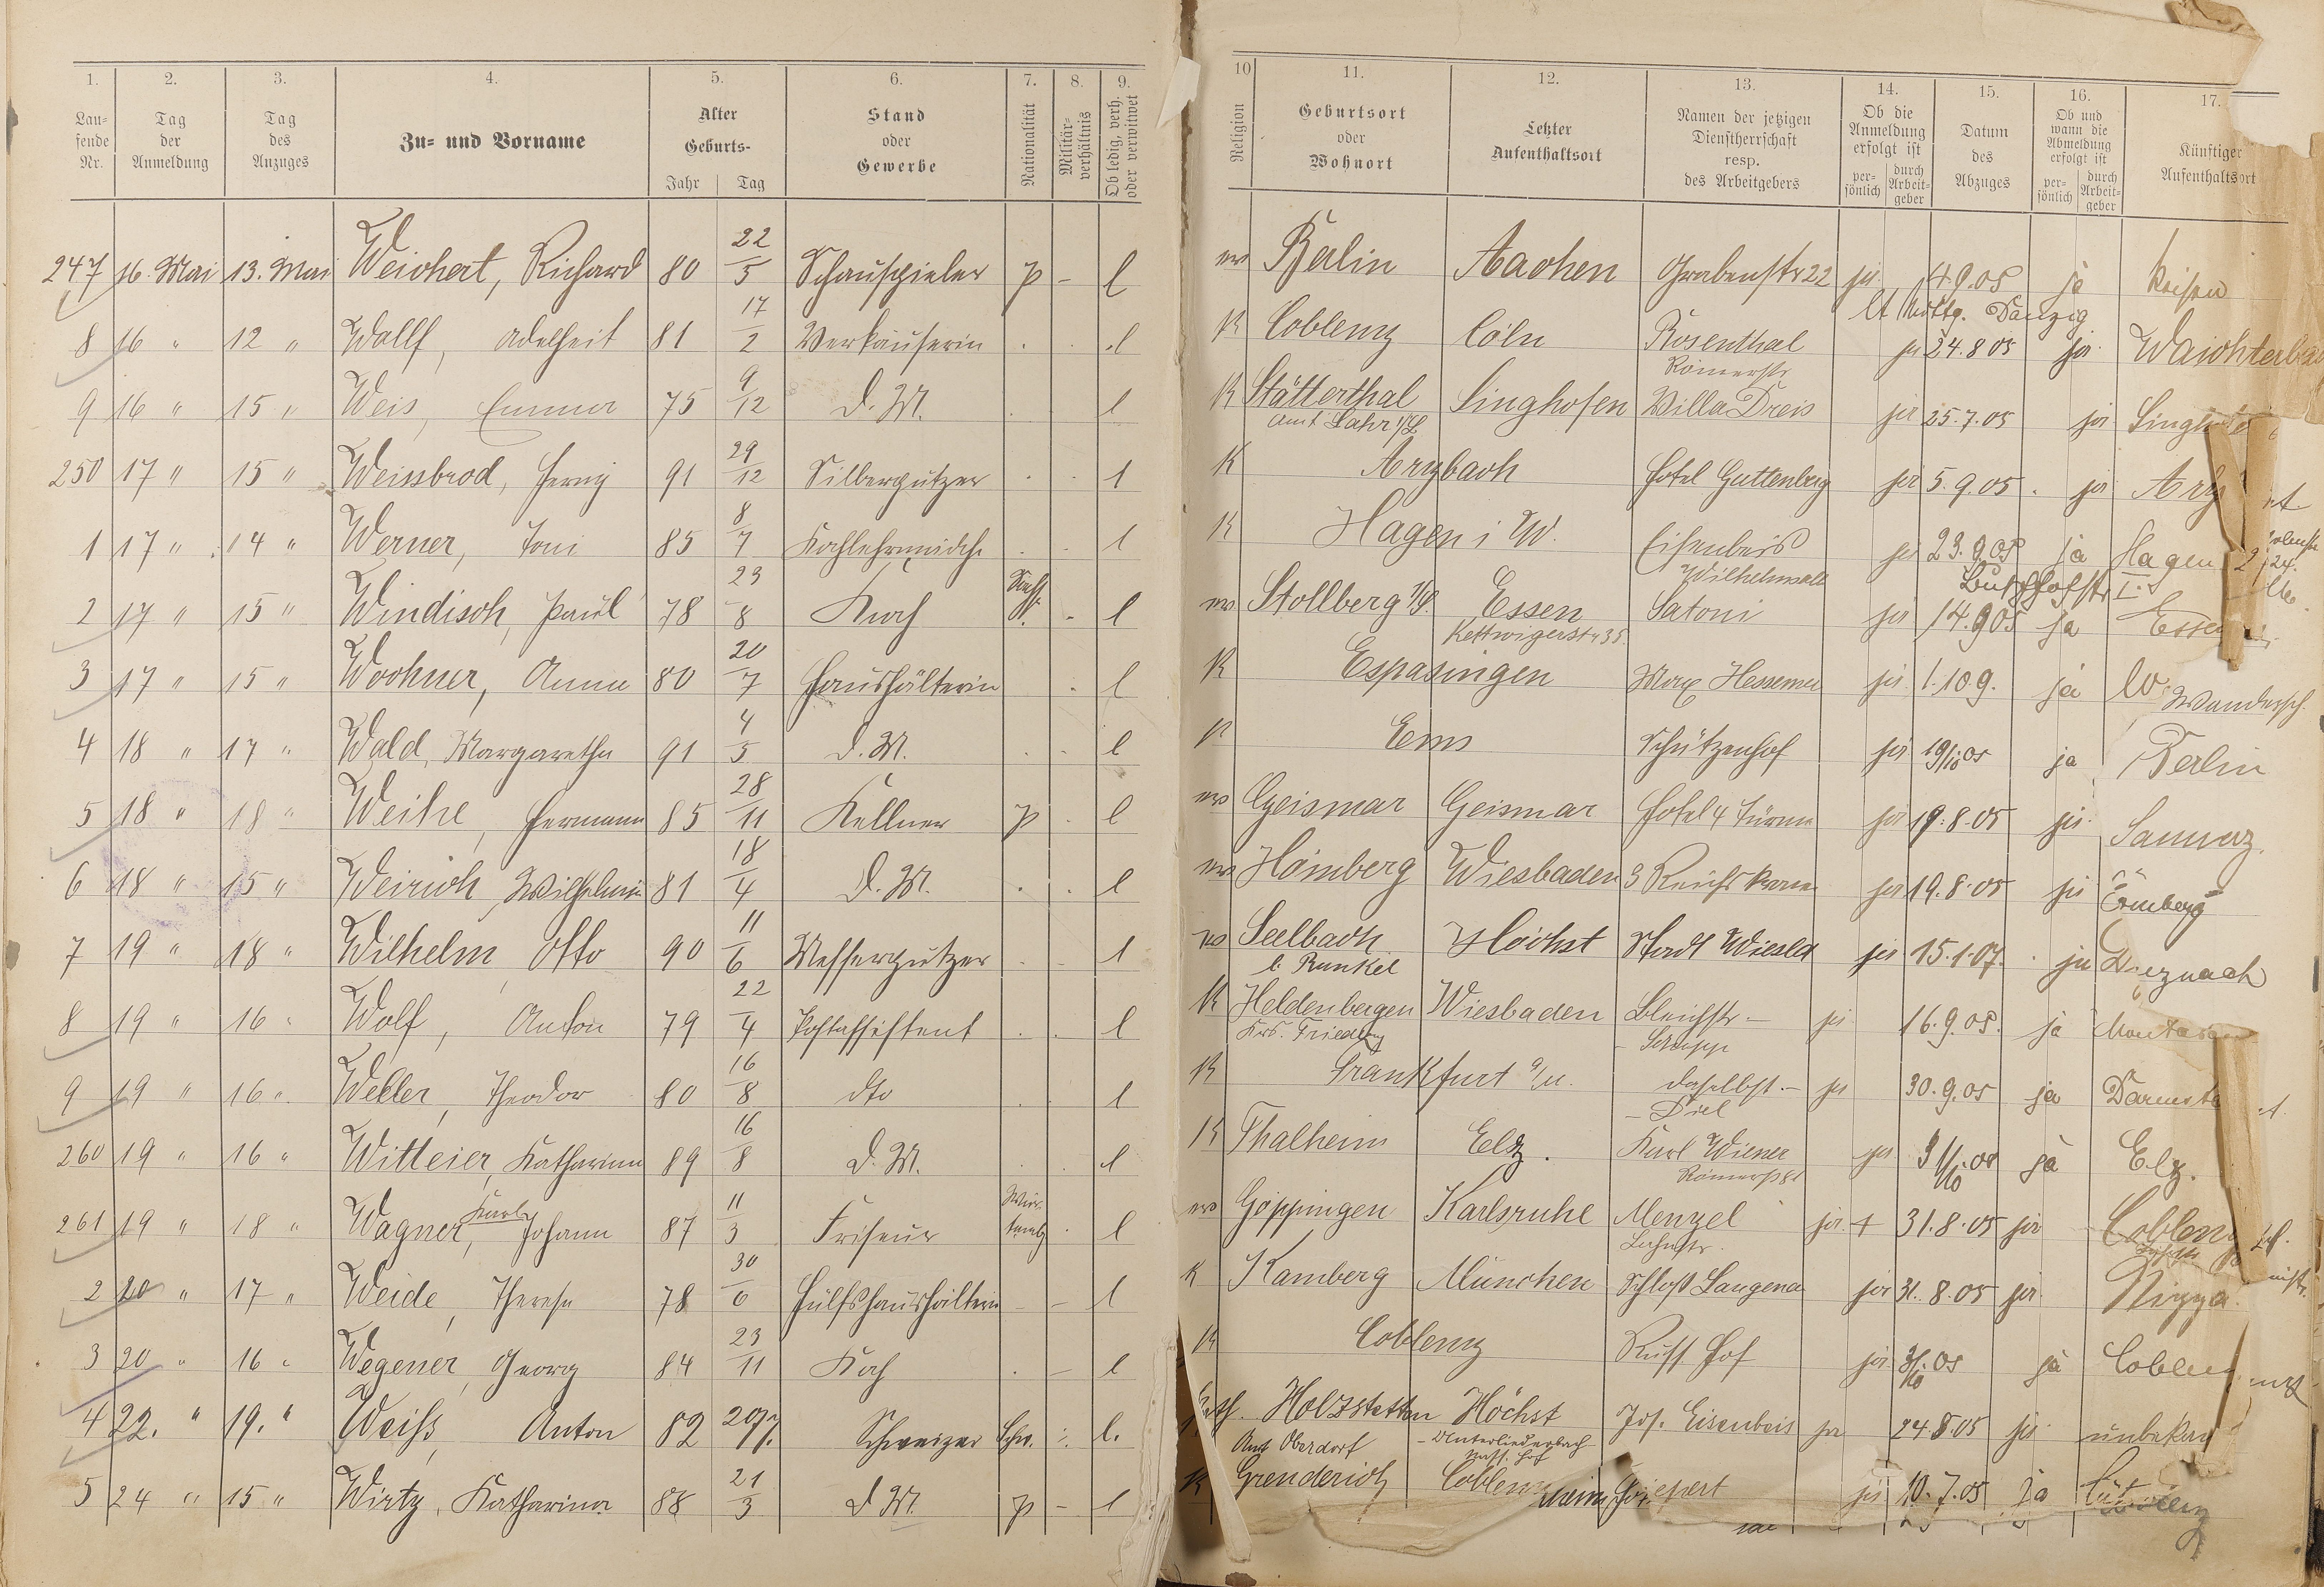 1. 2. 3. 4. 5. 6. 7. 8. 9.
Lau-
fende
Nr.
Tag
der
Anmeldung
Tag
des
Anzuges
Zu- und Vorname
Alter
Geburts-
Jahr Tag
Stand
oder
Gewerbe
Nationalität
Militär-
verhältnis
Ob ledig, verh.
oder verwitwet
247 16. Mai 13. Mai Weichert, Richard 80 22/5 Schauspieler p - l
8 16 " 12 " Wallf, Adelheit 81 17/2 Verkäuferin . . l
9 16 " 15 " Weis, Emma 75 9/12 d. M. . l
250 17 " 15 " Weissbrod, Henry 91 29/12 Silberputzer . . l
1 17 " 14 " Werner, Toni 85 8/7 Kochlehrmädch. . . l
2 17 " 15 " Windisch, Paul 78 23/8 Koch - l
3 17 " 15 " Wochner, Anna 80 20/7 Haushälterin . l
4 18 " 17 " Wald, Margaretha 91 4/5 d. M. . . l
5 18 " 18 " Weihe, Hermann 85 28/11 Kellner p . l
6 18 " 15 " Weirich, Wilhelmin 81 18/4 d. M. . . l
7 19 " 18 " Wilhelm, Otto 90 11/6 Messerputzer . . l
8 19 " 16 " Wolf, Anton 79 22/4 Postassistent . . l
9 19 " 16 " Weller, Theodor 80 16/8 dto . l
260 19 " 16 " Witteier, Katharina 89 16/8 d. M. . . l
261 19 " 18 " Wagner, Karl Johann 87 11/3 Friseur Würtembg . l
2 20 " 17 " Weide, Therese 78 30/6 Hülfshaushälterin - - l
3 20 " 16 " Wegener, Georg 84 23/11 Koch . - l
4 22. " 19. " Weiss, Anton 82 20/7. Schweizer Schw. l.
5 24 " 15 " Wirtz, Katharina 88 21/3 d M. p - l
10 11. 12. 13. 14. 15. 16. 17.
Religion
Geburtsort
oder
Wohnort
Letzter
Aufenthaltsort
Namen der jetzigen
Dienstherrschaft
resp.
des Arbeitgebers
Ob die
Anmeldung
erfolgt ist
per-
sönlich
durch
Arbeit-
geber
Datum
des
Abzuges
Ob und
wann die
Abmeldung
erfolgt ist
per-
sönlich
durch
Arbeit-
geber
Künftiger
Aufenthaltsort
ev Berlin Aachen Grabenstr 22 ja 4.9.05 ja Reisen
Danzig
K Coblenz Cöln Rosenthal ja 24.8 05 ja
Römerstr
K Stätterthal Singhofen Villa Dreis ja 25.7.05 ja
Amt Lahr
K Arzbach Hotel Guttenberg ja 5.9.05 . ja
K Hagen i W. Eisenbeis ja 23.9.05 ja Hagen
Wilhelmsall
ev Stollberg Essen Satoni ja 14.9 05 ja Essen
Kettwigerstr 35
K Espasingen Max Hessemer ja 1.10 9. ja Wandersch.
K Ems Schützenhof ja 19/10 05 ja Berlin
ev Geismar Geismar Hotel 4 Türme ja 19.8.05 ja
ev Hömberg Wiesbaden 3 Reichskrone ja 19.8.05 ja
ev Seelbach Höchst Stadt Wiesbd ja 15.1.07. . ja
b. Runkel
K Heldenbergen Wiesbaden Bleichstr - ja 16.9.05. ja
Krs. Friedbg
K Frankfurt a/M. daselbst - ja 30.9.05 ja
- Diel
K Thalheim Elz. Karl Wiener ja 31/10.05 ja Elz.
Römerstr
ev Göppingen Karlsruhe Menzel ja + 31.8.05 ja Coblenz
Lahnstr.
K Kamberg München Schloß Langenau ja 31.8.05 ja Nizza
K Coblenz Russ Hof ja 31/10.05 ja
Kath. Holzstetten Höchst Jos. Eisenbeis ja 24.8.05 ja
Amt Oberdorf - Unterliederbach
Nass. Hof
K Grenderich ja 10.7.05 ja